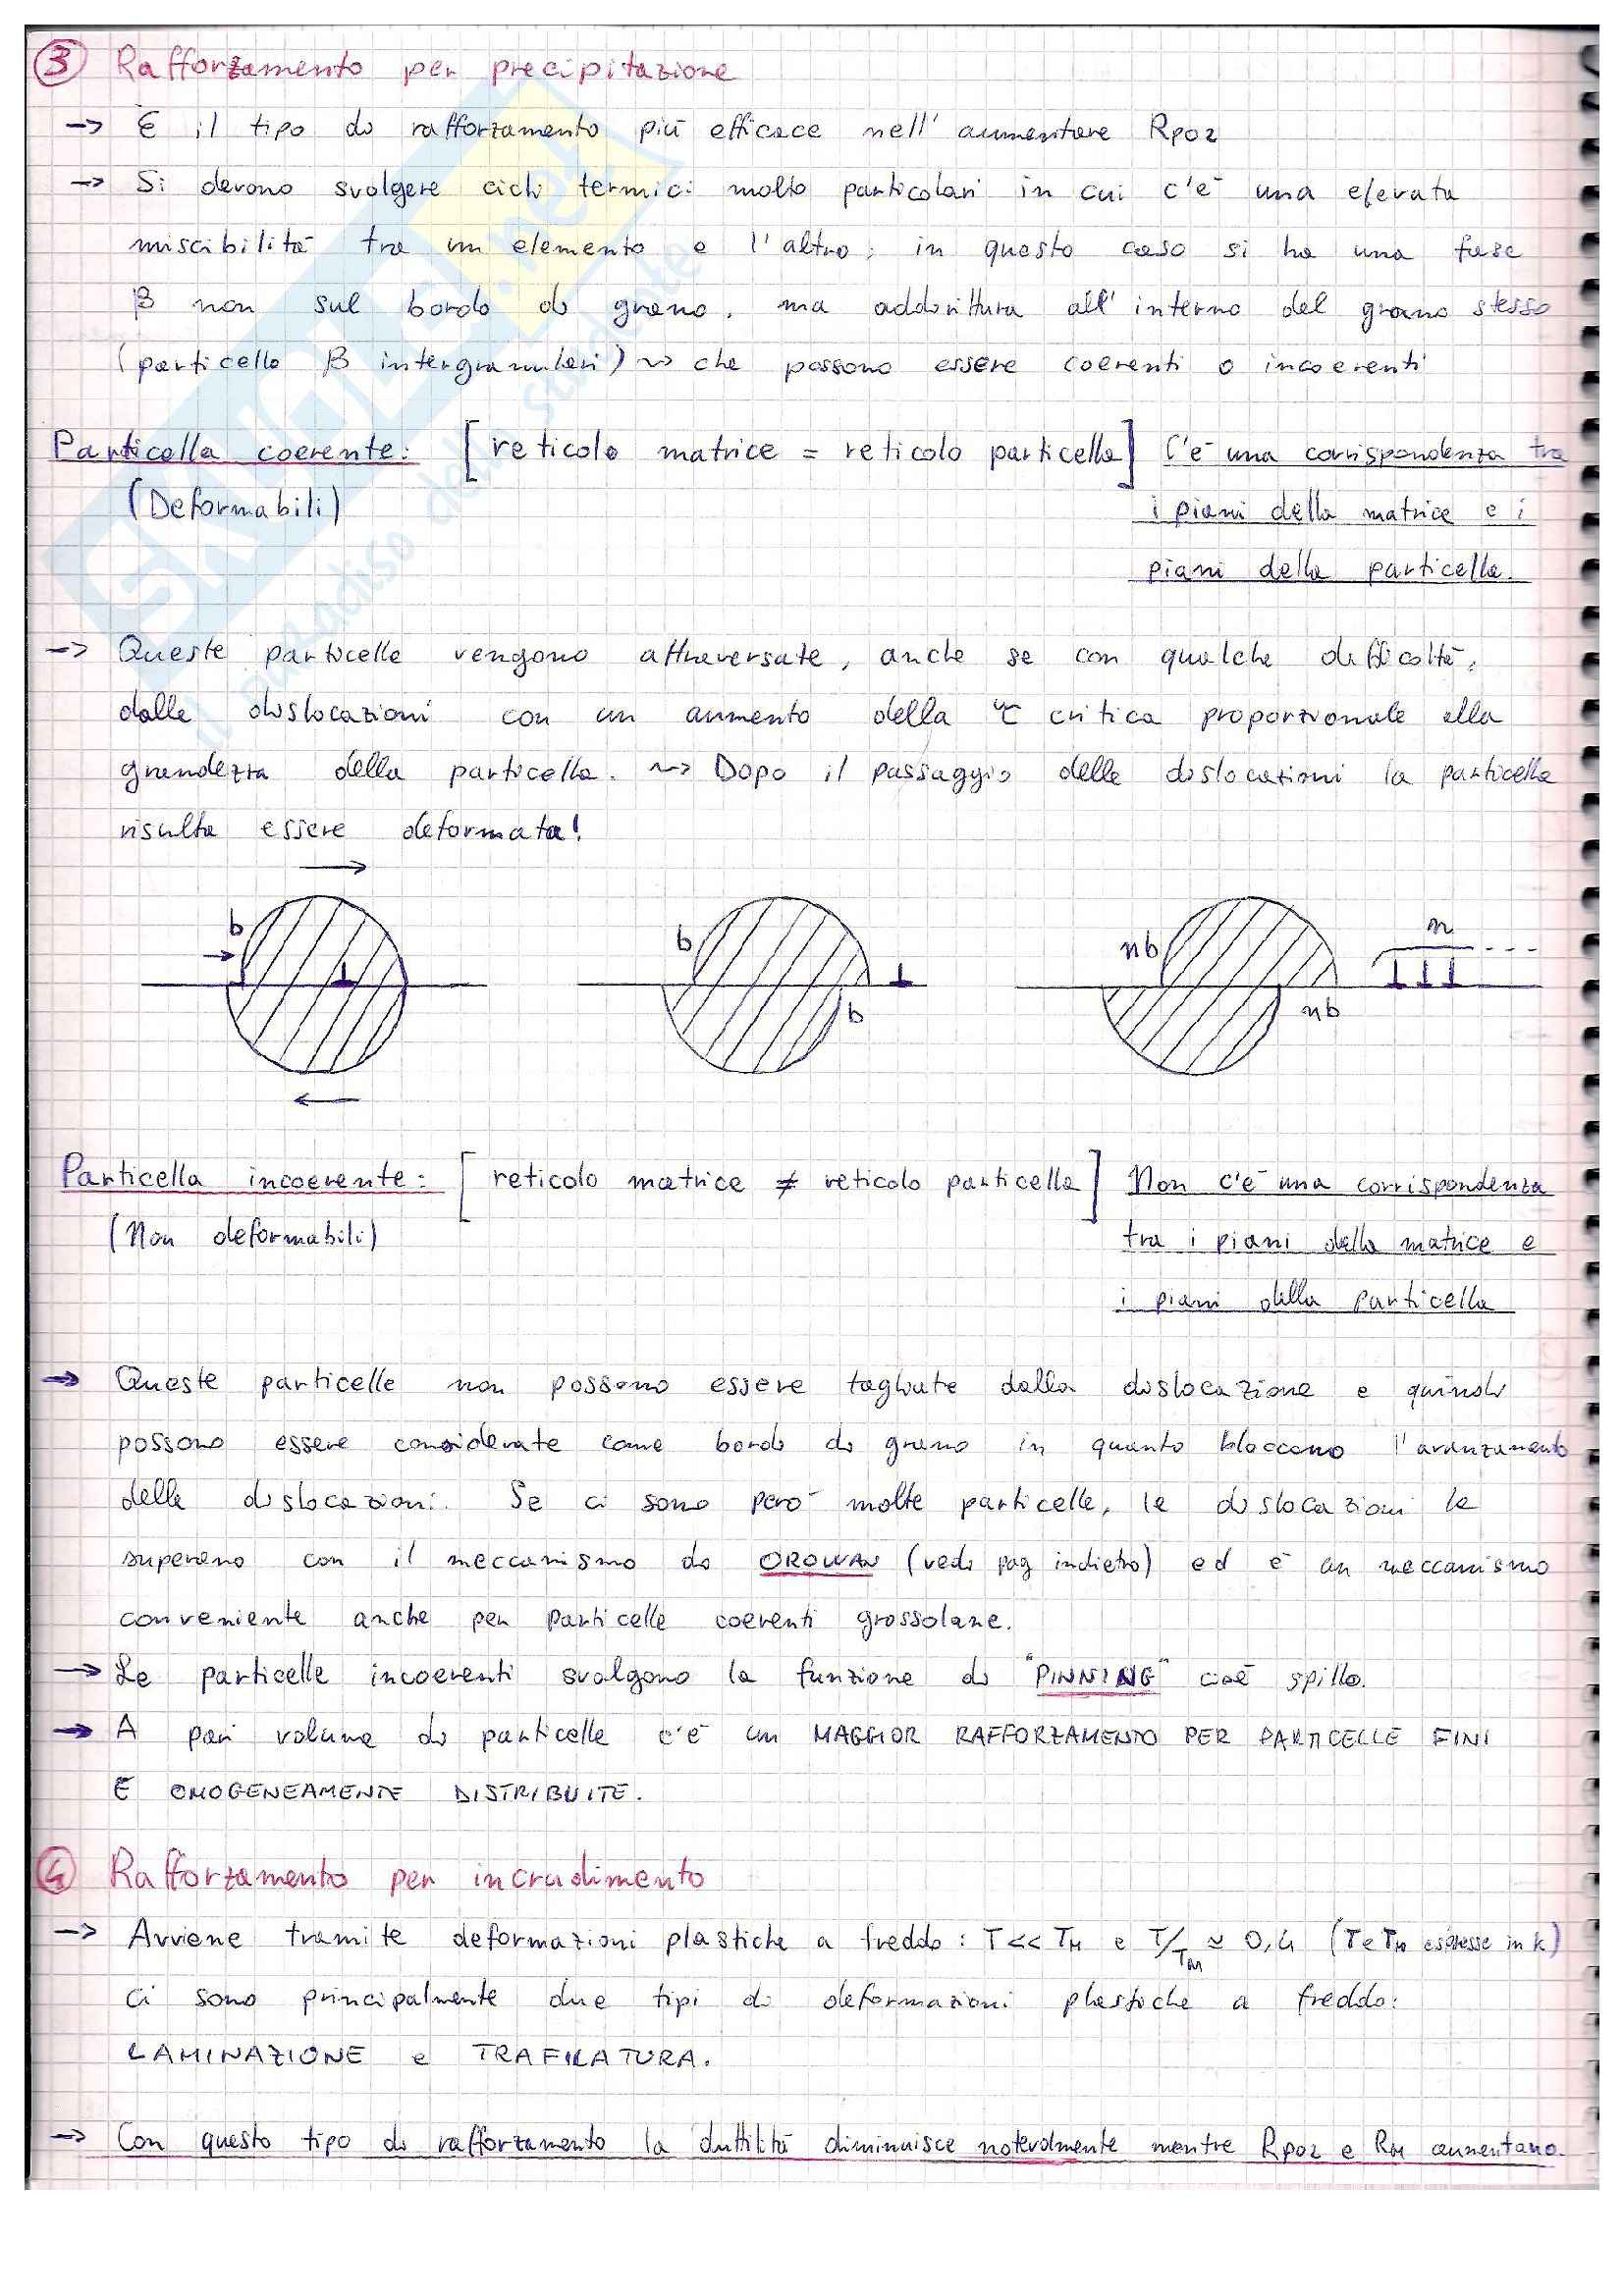 3 Rafforzamento per precipitazione
-> È il tipo di rafforzamento più efficace nell'aumentare Rp02
-> Si devono svolgere cicli termici molto particolari in cui c'è una elevata
miscibilità tra un elemento e l'altro; in questo caso si ha una fase
β non sul bordo di grano, ma addirittura all'interno del grano stesso
(particelle β intergranulari) ~> che possono essere coerenti o incoerenti
Particella coerente: [reticolo matrice = reticolo particella] C'è una corrispondenza tra
(Deformabili) i piani della matrice e i
piani della particella.
-> Queste particelle vengono attraversate, anche se con qualche difficoltà,
dalle dislocazioni con un aumento della τ critica proporzionale alla
grandezza della particella. ~> Dopo il passaggio delle dislocazioni la particella
risulta essere deformata!
b b nb n
b nb
Particella incoerente: [reticolo matrice ≠ reticolo particella] Non c'è una corrispondenza
(Non deformabili) tra i piani della matrice e
i piani della particella
-> Queste particelle non possono essere tagliate dalla dislocazione e quindi
possono essere considerate come bordi di grano in quanto bloccano l'avanzamento
delle dislocazioni. Se ci sono però molte particelle, le dislocazioni le
superano con il meccanismo di OROWAN (vedi pag indietro) ed è un meccanismo
conveniente anche per particelle coerenti grossolane.
-> Le particelle incoerenti svolgono la funzione di "PINNING" cioè spillo.
-> A pari volume di particelle c'è un MAGGIOR RAFFORZAMENTO PER PARTICELLE FINI
E OMOGENEAMENTE DISTRIBUITE.
4 Rafforzamento per incrudimento
-> Avviene tramite deformazioni plastiche a freddo: T << TM e T/TM ≈ 0,4 (T e TM espresse in k)
ci sono principalmente due tipi di deformazioni plastiche a freddo:
LAMINAZIONE e TRAFILATURA.
-> Con questo tipo di rafforzamento la duttilità diminuisce notevolmente mentre Rp02 e RM aumentano.